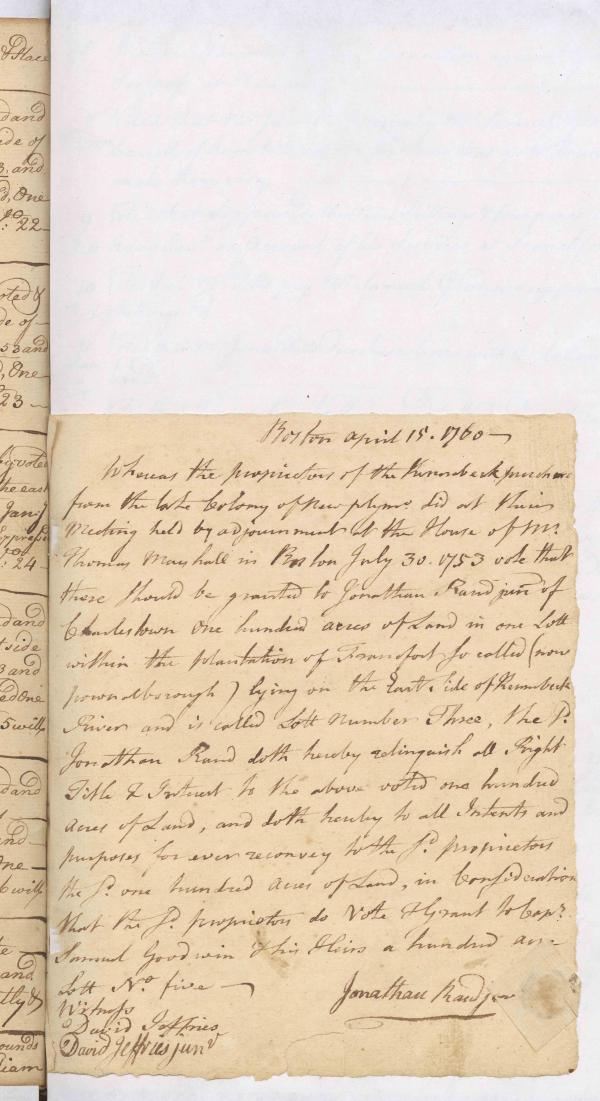 & Place
d and
ide of
3. and
d, One
No: 22
voted &
de of
53 and
d, One
23
voted
the east
Jany
express
No: 24
d and
t side
3 and
ed One
5 will
d and
and
One
6 will
and
tly &
ounds
liam
Boston april 15. 1760
Whereas the proprietors of the Kennebeck purchase
from the late Colony of New plymo. did at their
Meeting held by adjournment at the House of Mr.
Thomas Marshall in Boston July 30. 1753 vote that
there Should be granted to Jonathan Rand junr of
Charlestown one hundred acres of Land in one Lott
within the plantation of Francfort So called (now
pownalborough) lying on the East Side of Kennebeck
River and is called Lott number Three, the Sd.
Jonathan Rand doth hereby relinquish all Right
Title & Interest to the above voted one hundred
acres of Land, and doth hereby to all Intents and
purposes for ever reconvey to the Sd. proprietors
the Sd. one hundred acres of Land, in Consideration
that the Sd. proprietors do Vote & Grant to Capt.
Samuel Goodwin & his Heirs a hundred acre
Lott No. five
Jonathan Rand jun
Witness
David Jeffries
David Jeffries junr